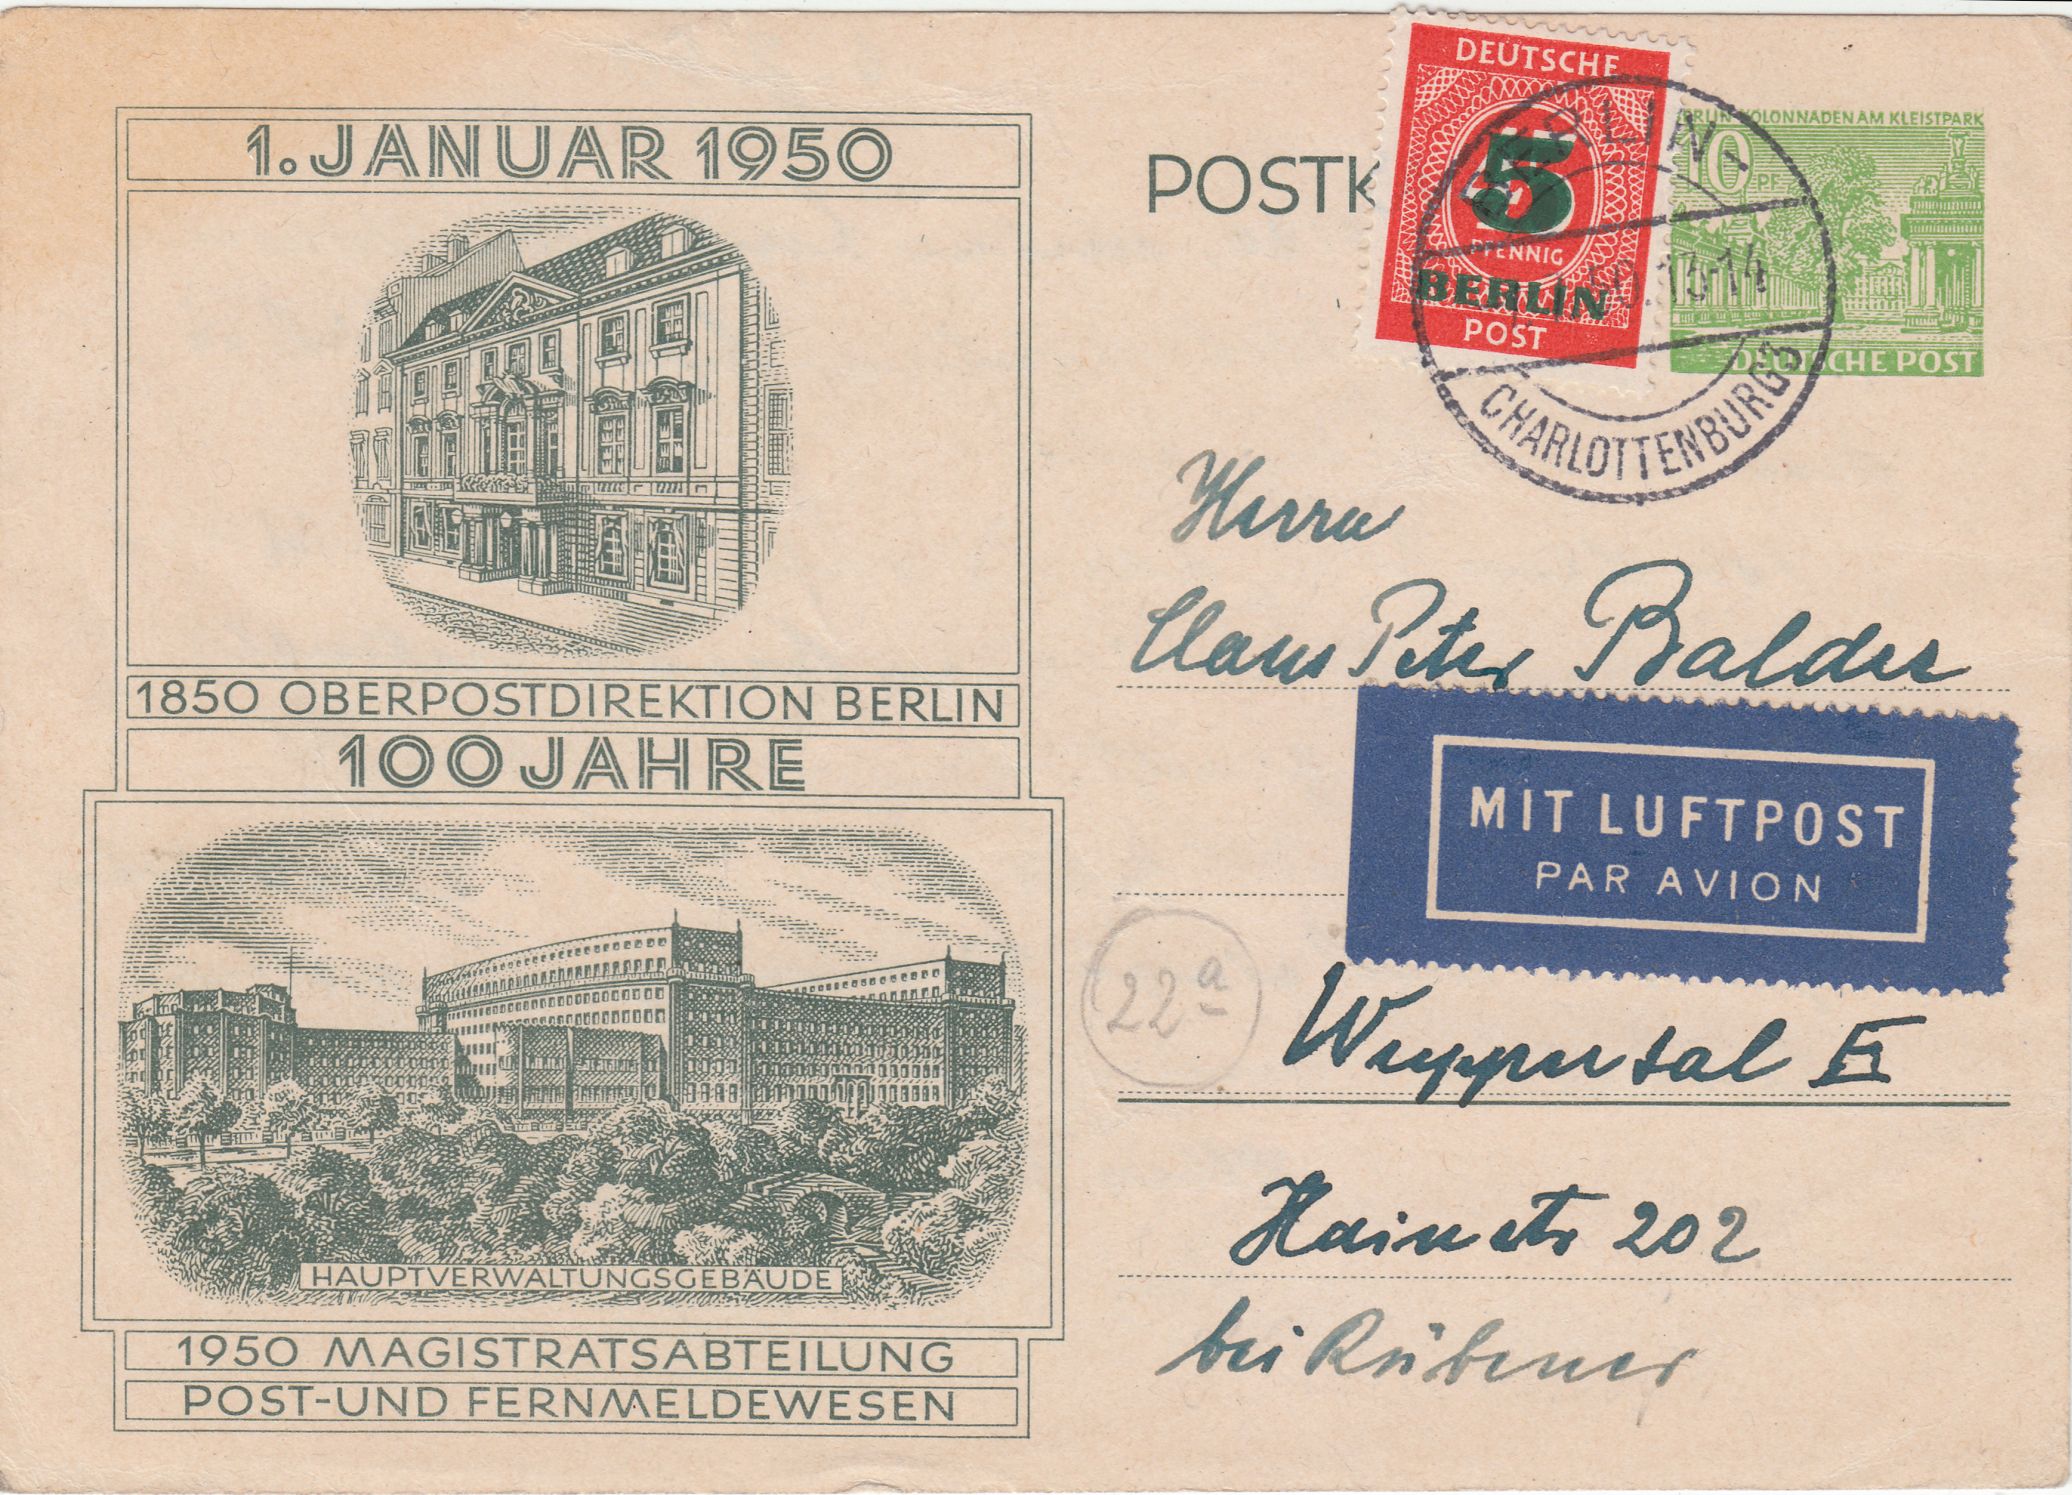 1. JANUAR 1950
1850 OBERPOSTDIREKTION BERLIN
100 JAHRE
HAUPTVERWALTUNGSGEBÄUDE
1950 MAGISTRATSABTEILUNG
POST-UND FERNMELDEWESEN
POSTK
DEUTSCHE
5
PFENNIG
BERLIN
POST
BERLIN-KOLONNADEN AM KLEISTPARK
10 PF
DEUTSCHE POST
BERLIN-
50.13-14
CHARLOTTENBURG
Herrn
Claus Peter Balder
MIT LUFTPOST
PAR AVION
22a
Wuppertal E
Hainstr 202
bei Rübener